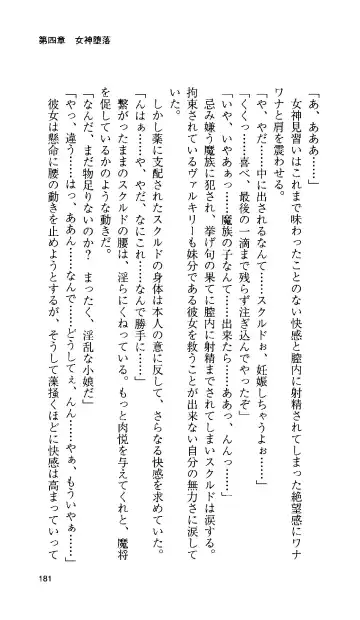 第四章　女神堕落
「あ、あああ……」
女神見習いはこれまで味わったことのない快感と膣内に射精されてしまった絶望感にワナ
ワナと肩を震わせる。
「や、やだ……中に出されるなんて……スクルドぉ、妊娠しちゃうよぉ……」
「くくっ……喜べ、最後の一滴まで残らず注ぎ込んでやったぞ」
「いや、いやあぁっ……魔族の子なんて……出来たら……ああっ、んんっ……」
忌み嫌う魔族に犯され、挙げ句の果てに膣内に射精までされてしまいスクルドは涙する。
拘束されているヴァルキリーも妹分である彼女を救うことが出来ない自分の無力さに涙して
いた。
しかし薬に支配されたスクルドの身体は本人の意に反して、さらなる快感を求めていた。
「んはぁ……や、やだ、なにこれ……なんで勝手に……」
繋がったままのスクルドの腰は、淫らにくねっている。もっと肉悦を与えてくれと、魔将
を促しているかのような動きだ。
「なんだ、まだ物足りないのか？　まったく、淫乱な小娘だ」
「やっ、違う……はっ、ああん……なんで……どうしてぇ、んん……やぁ、もういやぁ……」
彼女は懸命に腰の動きを止めようとするが、そうして藻掻くほどに快感は高まっていって
181